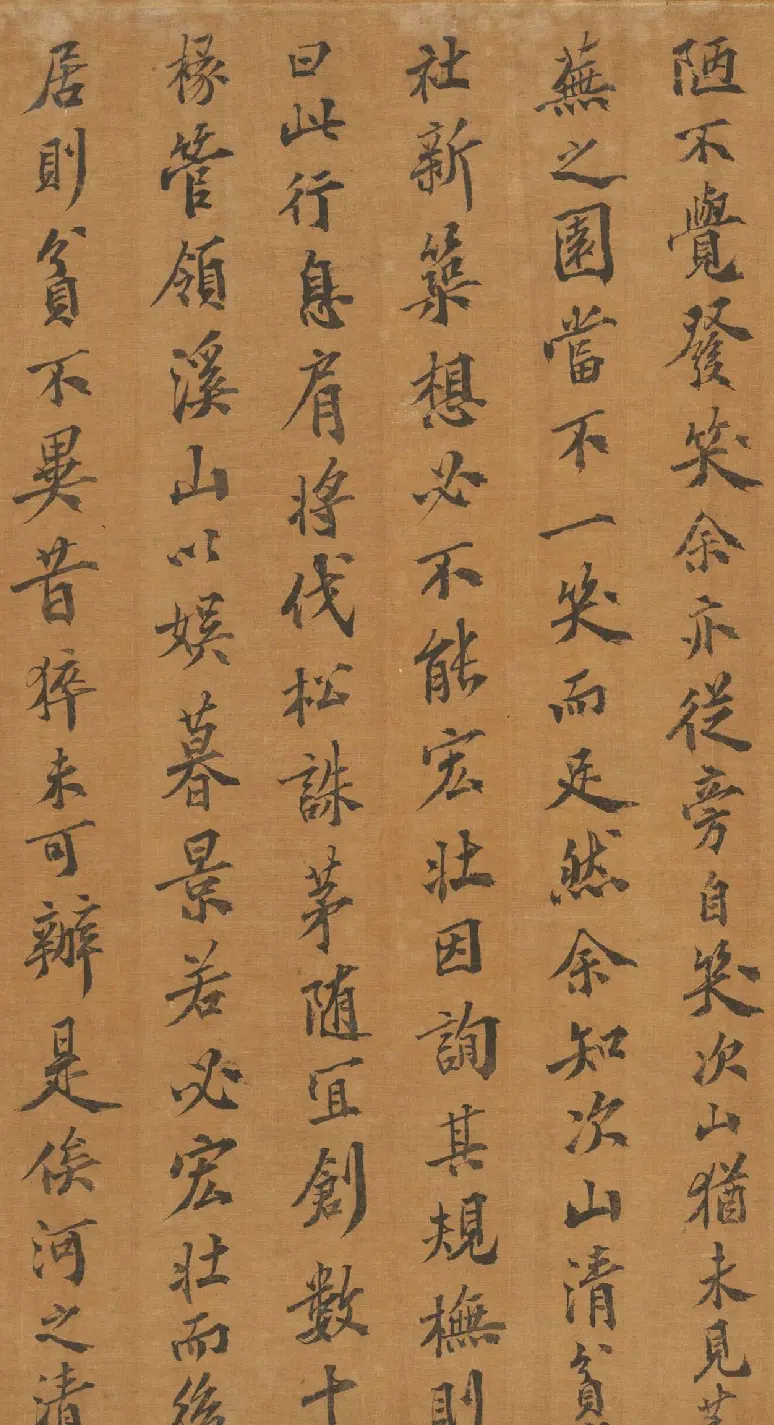 陋不覺發笑余亦從旁自笑次山猶未見
蕪之園當不一笑而足然余知次山清貧
社新築想必不能宏壯因詢其規橅則
曰此行息肩將伐松誅茅随宜創數十
椽管領溪山以娛暮景若必宏壯而後
居則貧不異昔猝未可辦是俟河之清